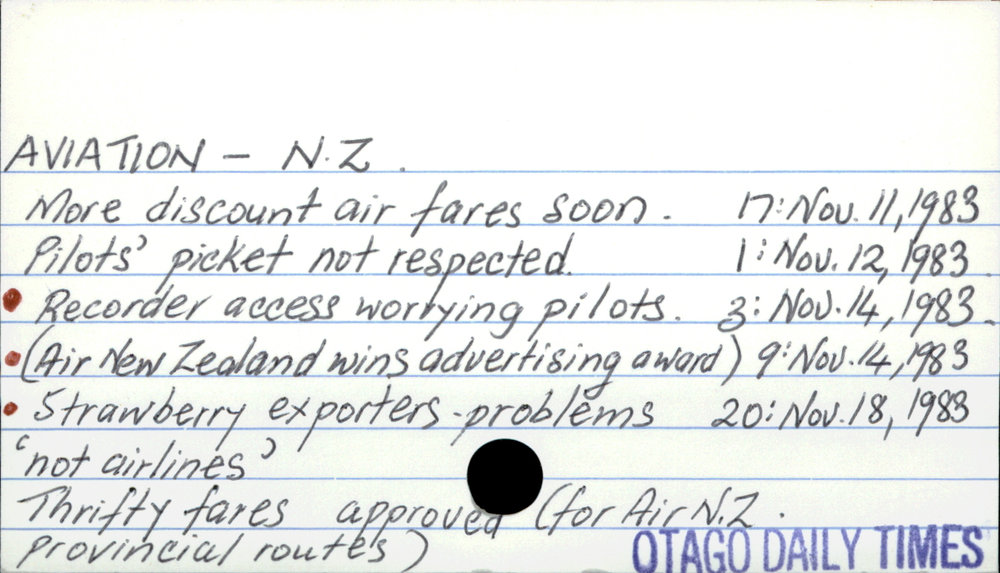 AVIATION - N.Z.
More discount air fares soon. 17: Nov. 11, 1983
Pilots' picket not respected. 1: Nov. 12, 1983
Recorder access worrying pilots. 3: Nov. 14, 1983.
(Air New Zealand wins advertising award) 9: Nov. 14, 1983
Strawberry exporters - problems 20: Nov. 18, 1983
'not airlines'
Thrifty fares approved (for Air N.Z.
provincial routes)
OTAGO DAILY TIMES